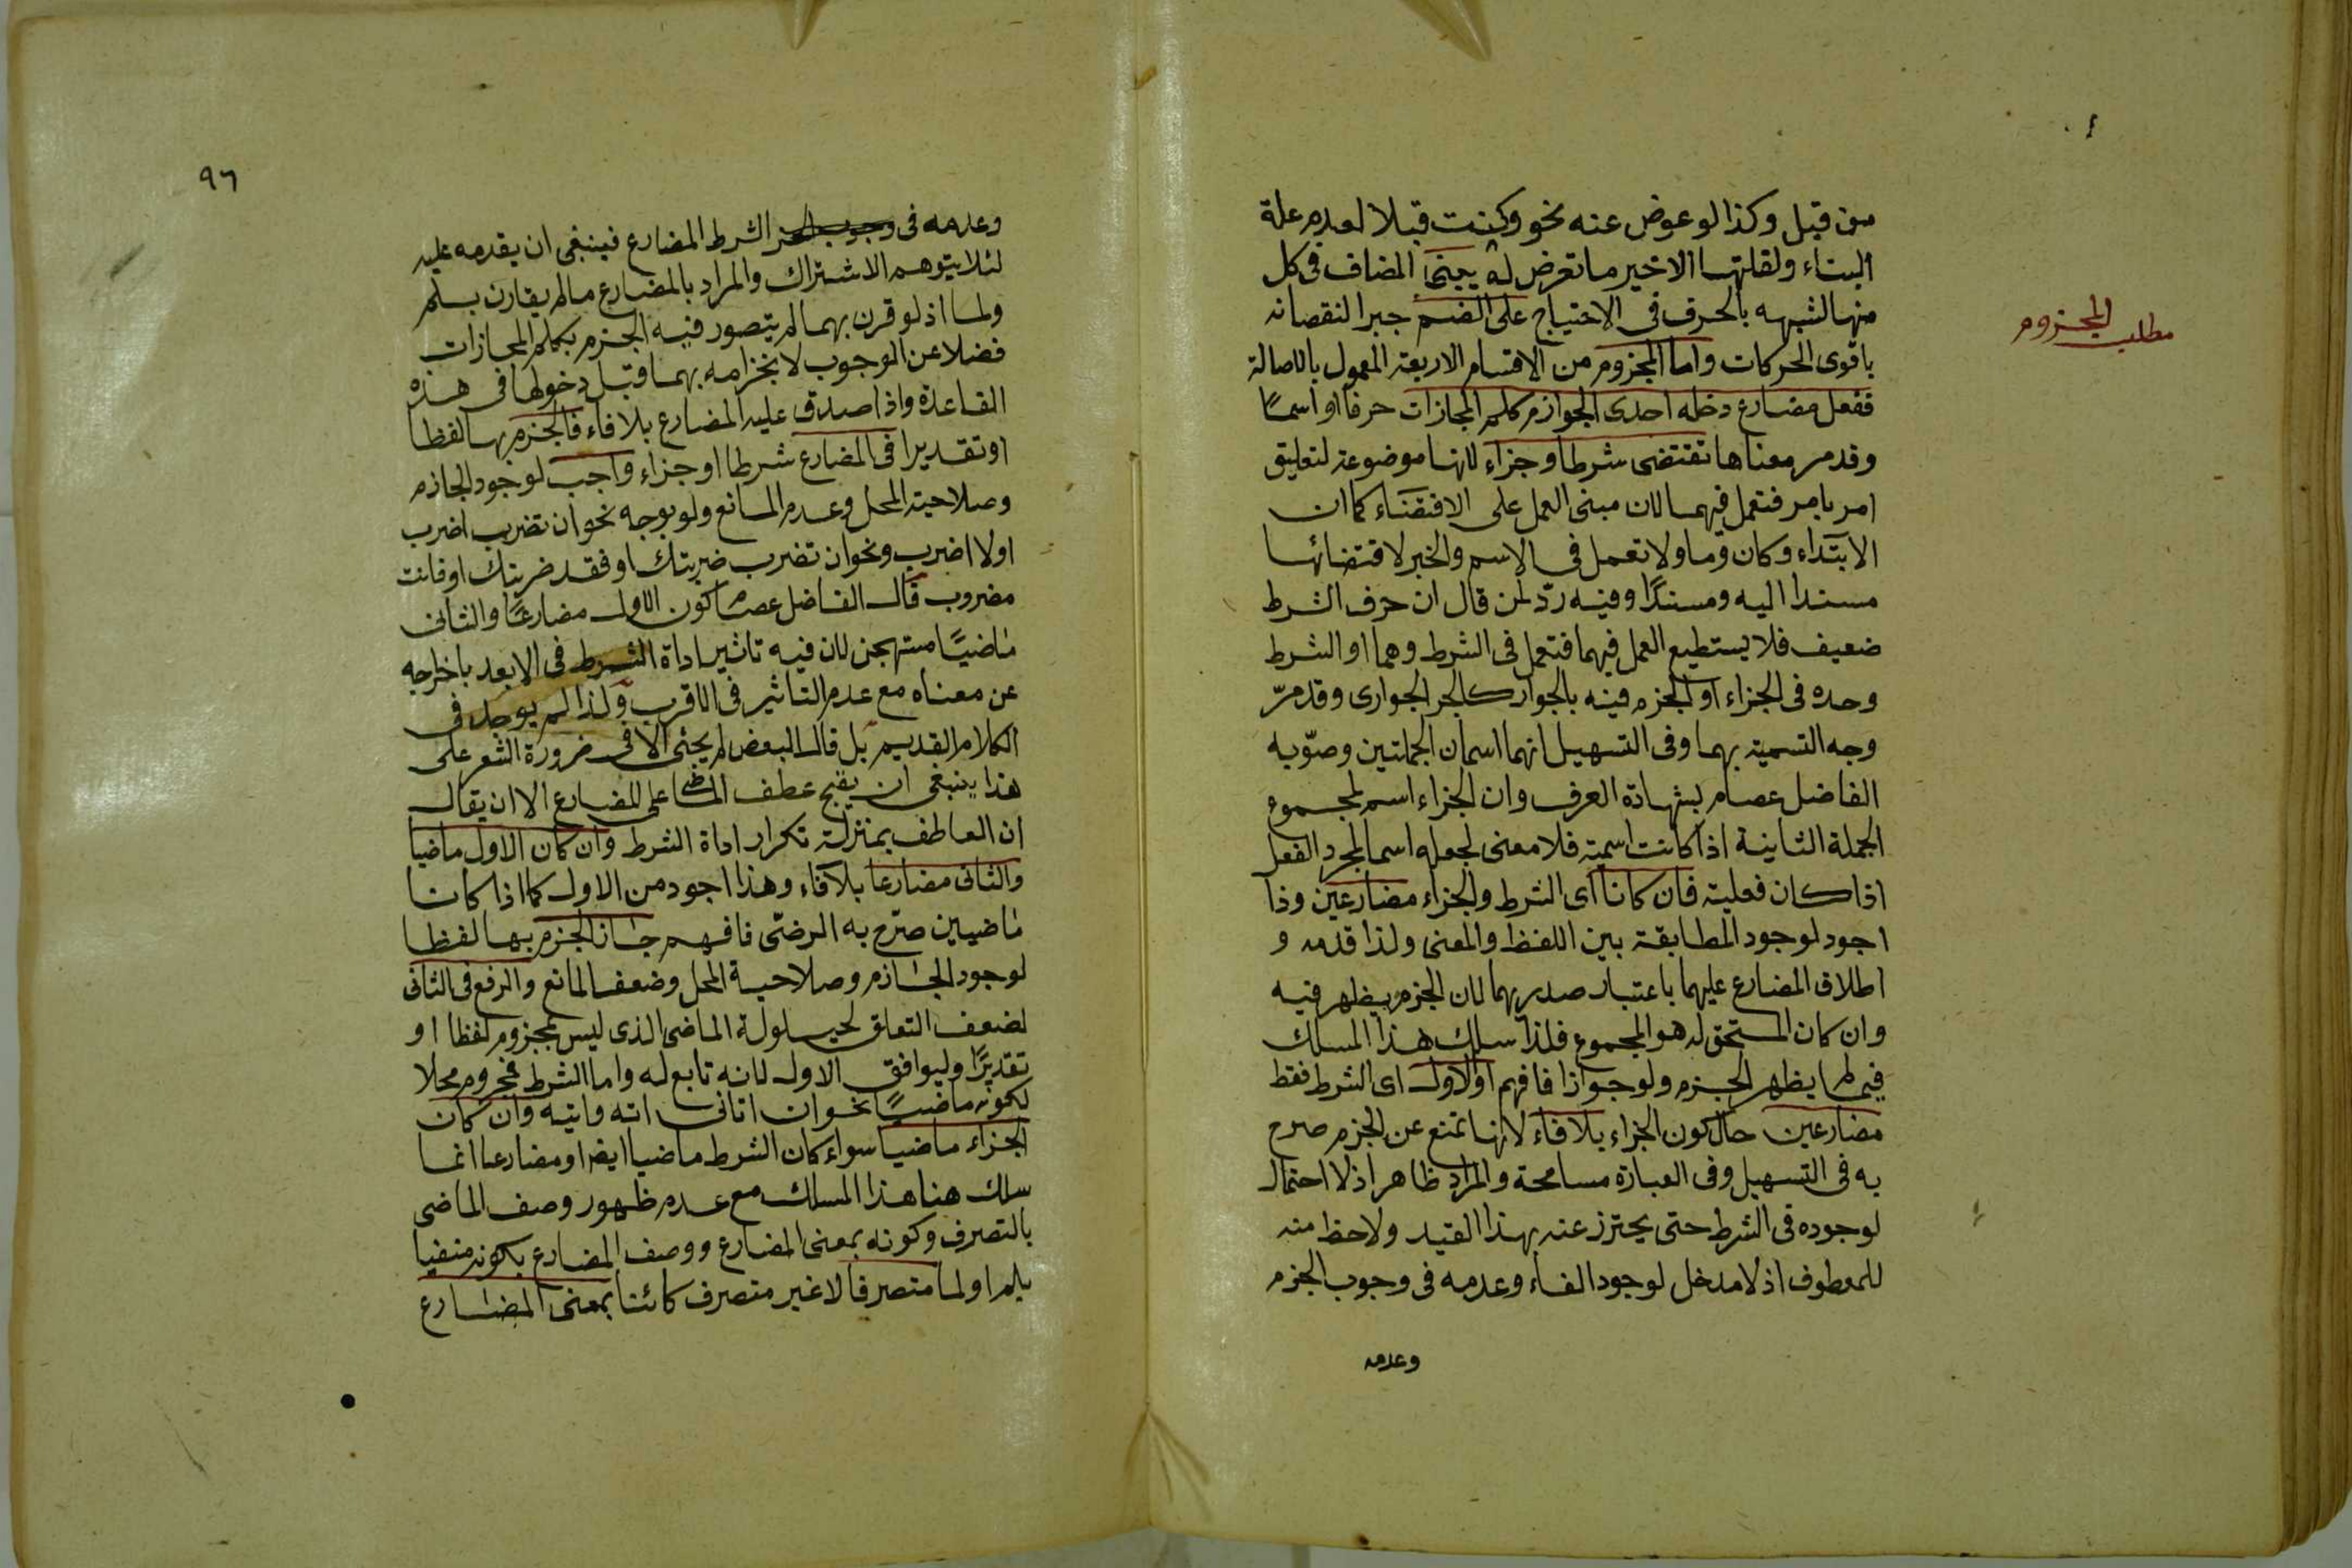 من قبل وكذا لو عوض عنه نحو وكنت قبلا لعدم علة
البناء ولقلتها الاخير ما تعرض له يعنى المضاف فى كل
منها لشبهه بالحرف فى الاحتياج على الضم جبرا لنقصانه
باقوى الحركات واما المجزوم من الاقسام الاربعة المعمول بالاصالة
مطلب المجزوم
ففعل مضارع دخله احدى الجوازم كلم المجازات حرفا او اسمًا
وقد مر معناها تقتضى شرطا وجزاء لانها موضوعة لتعليق
امر بامر فتعمل فيهما لان مبنى العمل على الاقتضاء كما ان
الابتداء وكان وما ولا تعمل فى الاسم والخبر لاقتضائها
مسندا اليه ومسندًا وفيه ردّ لمن قال ان حرف الشرط
ضعيف فلا يستطيع العمل فيهما فتعمل فى الشرط وهما او الشرط
وحده فى الجزاء او الجزم فيه بالجوار كالجر الجوارى وقد مرّ
وجه التسمية بهما وفى التسهيل انهما اسمان الجملتين وصوّبه
الفاضل عصام بشهادة العرف وان الجزاء اسم لمجموع
الجملة الثانية اذا كانت اسمية فلا معنى لجعله اسما لمجرد الفعل
اذا كان فعلية فان كانا اى الشرط والجزاء مضارعين وذا
اجود لوجود المطابقة بين اللفظ والمعنى ولذا قدمه و
اطلاق المضارع عليهما باعتبار صدريهما لان الجزم يظهر فيه
وان كان المستحق له هو المجموع فلذا سلك هذا المسلك
فيما لم يظهر الجزم ولو جوازا فافهم او الاول اى الشرط فقط
مضارعين حال كون الجزاء بلا فاء لانها تمنع عن الجزم صرح
به فى التسهيل وفى العبارة مسامحة والمراد ظاهر اذ لا احتمال
لوجوده فى الشرط حتى يحترز عنه بهذا القيد ولاحظ منه
للمعطوف اذ لا مدخل لوجود الفاء وعدمه فى وجوب الجزم
وعدمه
٩٦
وعدمه فى الشرط المضارع فينبغى ان يقدمه عليه
لئلا يتوهم الاشتراك والمراد بالمضارع ما لم يقارن بلم
ولما اذ لو قرن بهما لم يتصور فيه الجزم بكلم المجازات
فضلا عن الوجوب لانجزامه بهما قبل دخولها فى هذه
القاعدة واذا صدق عليه المضارع بلا فاء فالجزم بها لفظا
او تقديرا فى المضارع شرطا او جزاء واجب لوجود الجازم
وصلاحية المحل وعدم المانع ولو بوجه نحو ان تضرب اضرب
او لا اضرب ونحو ان تضرب ضربتك او فقد ضربتك او فانت
مضروب قال الفاضل عصام كون الاول مضارعًا والثانى
ماضيًا مستهجن لان فيه تاثير اداة الشرط فى الابعد باخراجه
عن معناه مع عدم التاثير فى الاقرب ولذا لم يوجد فى
الكلام القديم بل قال البعض لم يجئ الا فى ضرورة الشعر على
هذا ينبغى ان يقبح عطف الماضى على المضارع الا ان يقال
ان العاطف بمنزلة تكرار اداة الشرط وان كان الاول ماضيا
والثانى مضارعا بلا فاء وهذا اجود من الاول كما اذا كانا
ماضيين صرّح به الرضى فافهم جاز الجزم بها لفظا
لوجود الجازم وصلاحية المحل وضعف المانع والرفع فى الثانى
لضعف التعلق لحيلولة الماضى الذى ليس بمجزوم لفظا او
تقديرًا وليوافق الاول لانه تابع له واما الشرط فمجزوم محلا
لكونه ماضيًا نحو ان اتانى اته واتيه وان كان
الجزاء ماضيا سواء كان الشرط ماضيا ايضا او مضارعا انما
سلك هنا هذا المسلك مع عدم ظهور وصف الماضى
بالتصرف وكونه بمعنى المضارع ووصف المضارع بكونه منفيا
بلم او لما متصرفا لا غير متصرف كائنا بمعنى المضارع